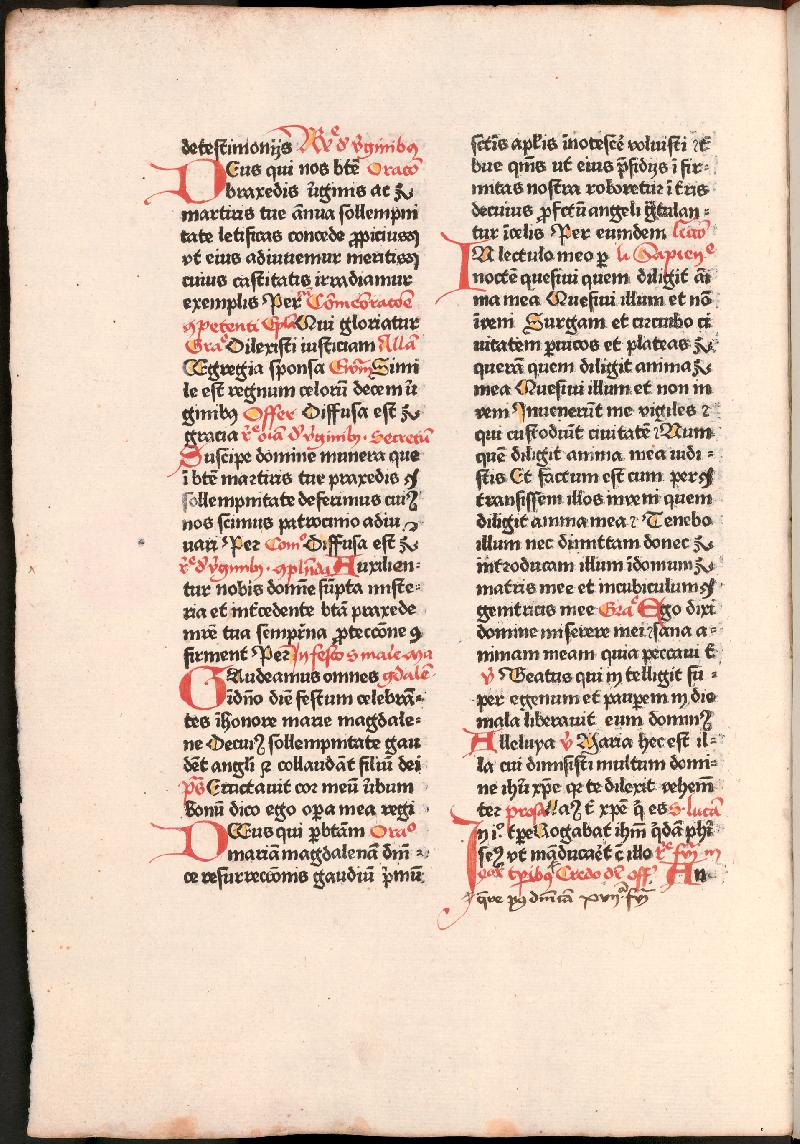 detestimonijs Re de v̄ginibꝫ
DEus qui nos btē Oracō
braxedis v̄ginis ac
martiris tue ānua sollempni
tate letificas concede ꝓpicius
vt eius adiuuemur meritis
cuius castitatis irradiamur
exemplis Per Cōmēoracōe
ꝯpetenti Ep̄la Qui gloriatur
Graᵉ Dilexisti iusticiam Alla
Egregia sponsa Ewm̄ Simi
le est regnum celorū decem v̄
ginibꝫ Offer Diffusa est
gracia rᵉ oīa de v̄ginibꝫ. Secretū
Suscipe domine munera que
ī btē martiris tue praxedis
sollempnitate deferimus cuiꝰ
nos scimus patrocinio adiu
uari Per Comᵒ Diffusa est
rᵉ de v̄ginibꝫ. ꝯplēnda Auxilien-
tur nobis domīe sūpta miste-
ria et int̄cedente btā praxede
mr̄e tua semp̄rna ꝓteccōne ꝯ
firment Per In festo s marie ma
GAudeamus omnes gdalēᵉ
ī dn̄o diē festum celebrā-
tes ī honore marie magdale-
ne Decuiꝰ sollempnitate gau
dēt angl̄i ⁊ collaudāt filiū dei
pˢ Eructauit cor meū v̄bum
bonū dico ego oꝑa mea regi
DEus qui ꝑ btām Oraᵒ
mariam magdalenā
ce resurreccōnis gaudiū p̄mū
sc̄tis apl̄is īnotescē voluisti
bue qm̄s ut eius p̄sidijs ī fir-
mitas nostra roboretur ī t̄ris
decuius ꝓfcū angeli ḡtulan-
tur ī celis Per eumdem lcc̄o
IN lectulo meo ꝑ li Sapienᵉ
noctē quesiui quem diligit āi
ma mea Quesiui illum et nō
īueni Surgam et circuibo ci
uitatem ꝑ uicos et plateas
querā quem diligit anima
mea Quesiui illum et non in
veni Inuenerūt me vigiles
qui custodiūt ciuitatē Num
quē diligit anima mea uidi-
stis Et factum est cum per
transissem illos inveni quem
diligit anima mea Tenebo
illum nec dimittam donec
introducam illum ī domum
matris mee et in cubiculum
genitricis mee Graᵉ Ego dixi
domine miserere mei sana a-
nimam meam quia peccaui t̄
v̄ Beatus qui intelligit su-
per egenum et pauꝑem in die
mala liberauit eum dominꝰ
Alleluya v̄ Maria hec est il-
la cui dimisisti multum domi-
ne ihū xp̄e qr te dilexit vehem̄
ter prosa t̄ xp̄e q̄ es S. lucā
In iᵒ t̄pe Rogabat ihm̄ q̄dā ph̄i
seꝰ vt māducaēt c̄ illo rᵉ
Credo dr̄ off. An
q̄re dn̄icā xvij